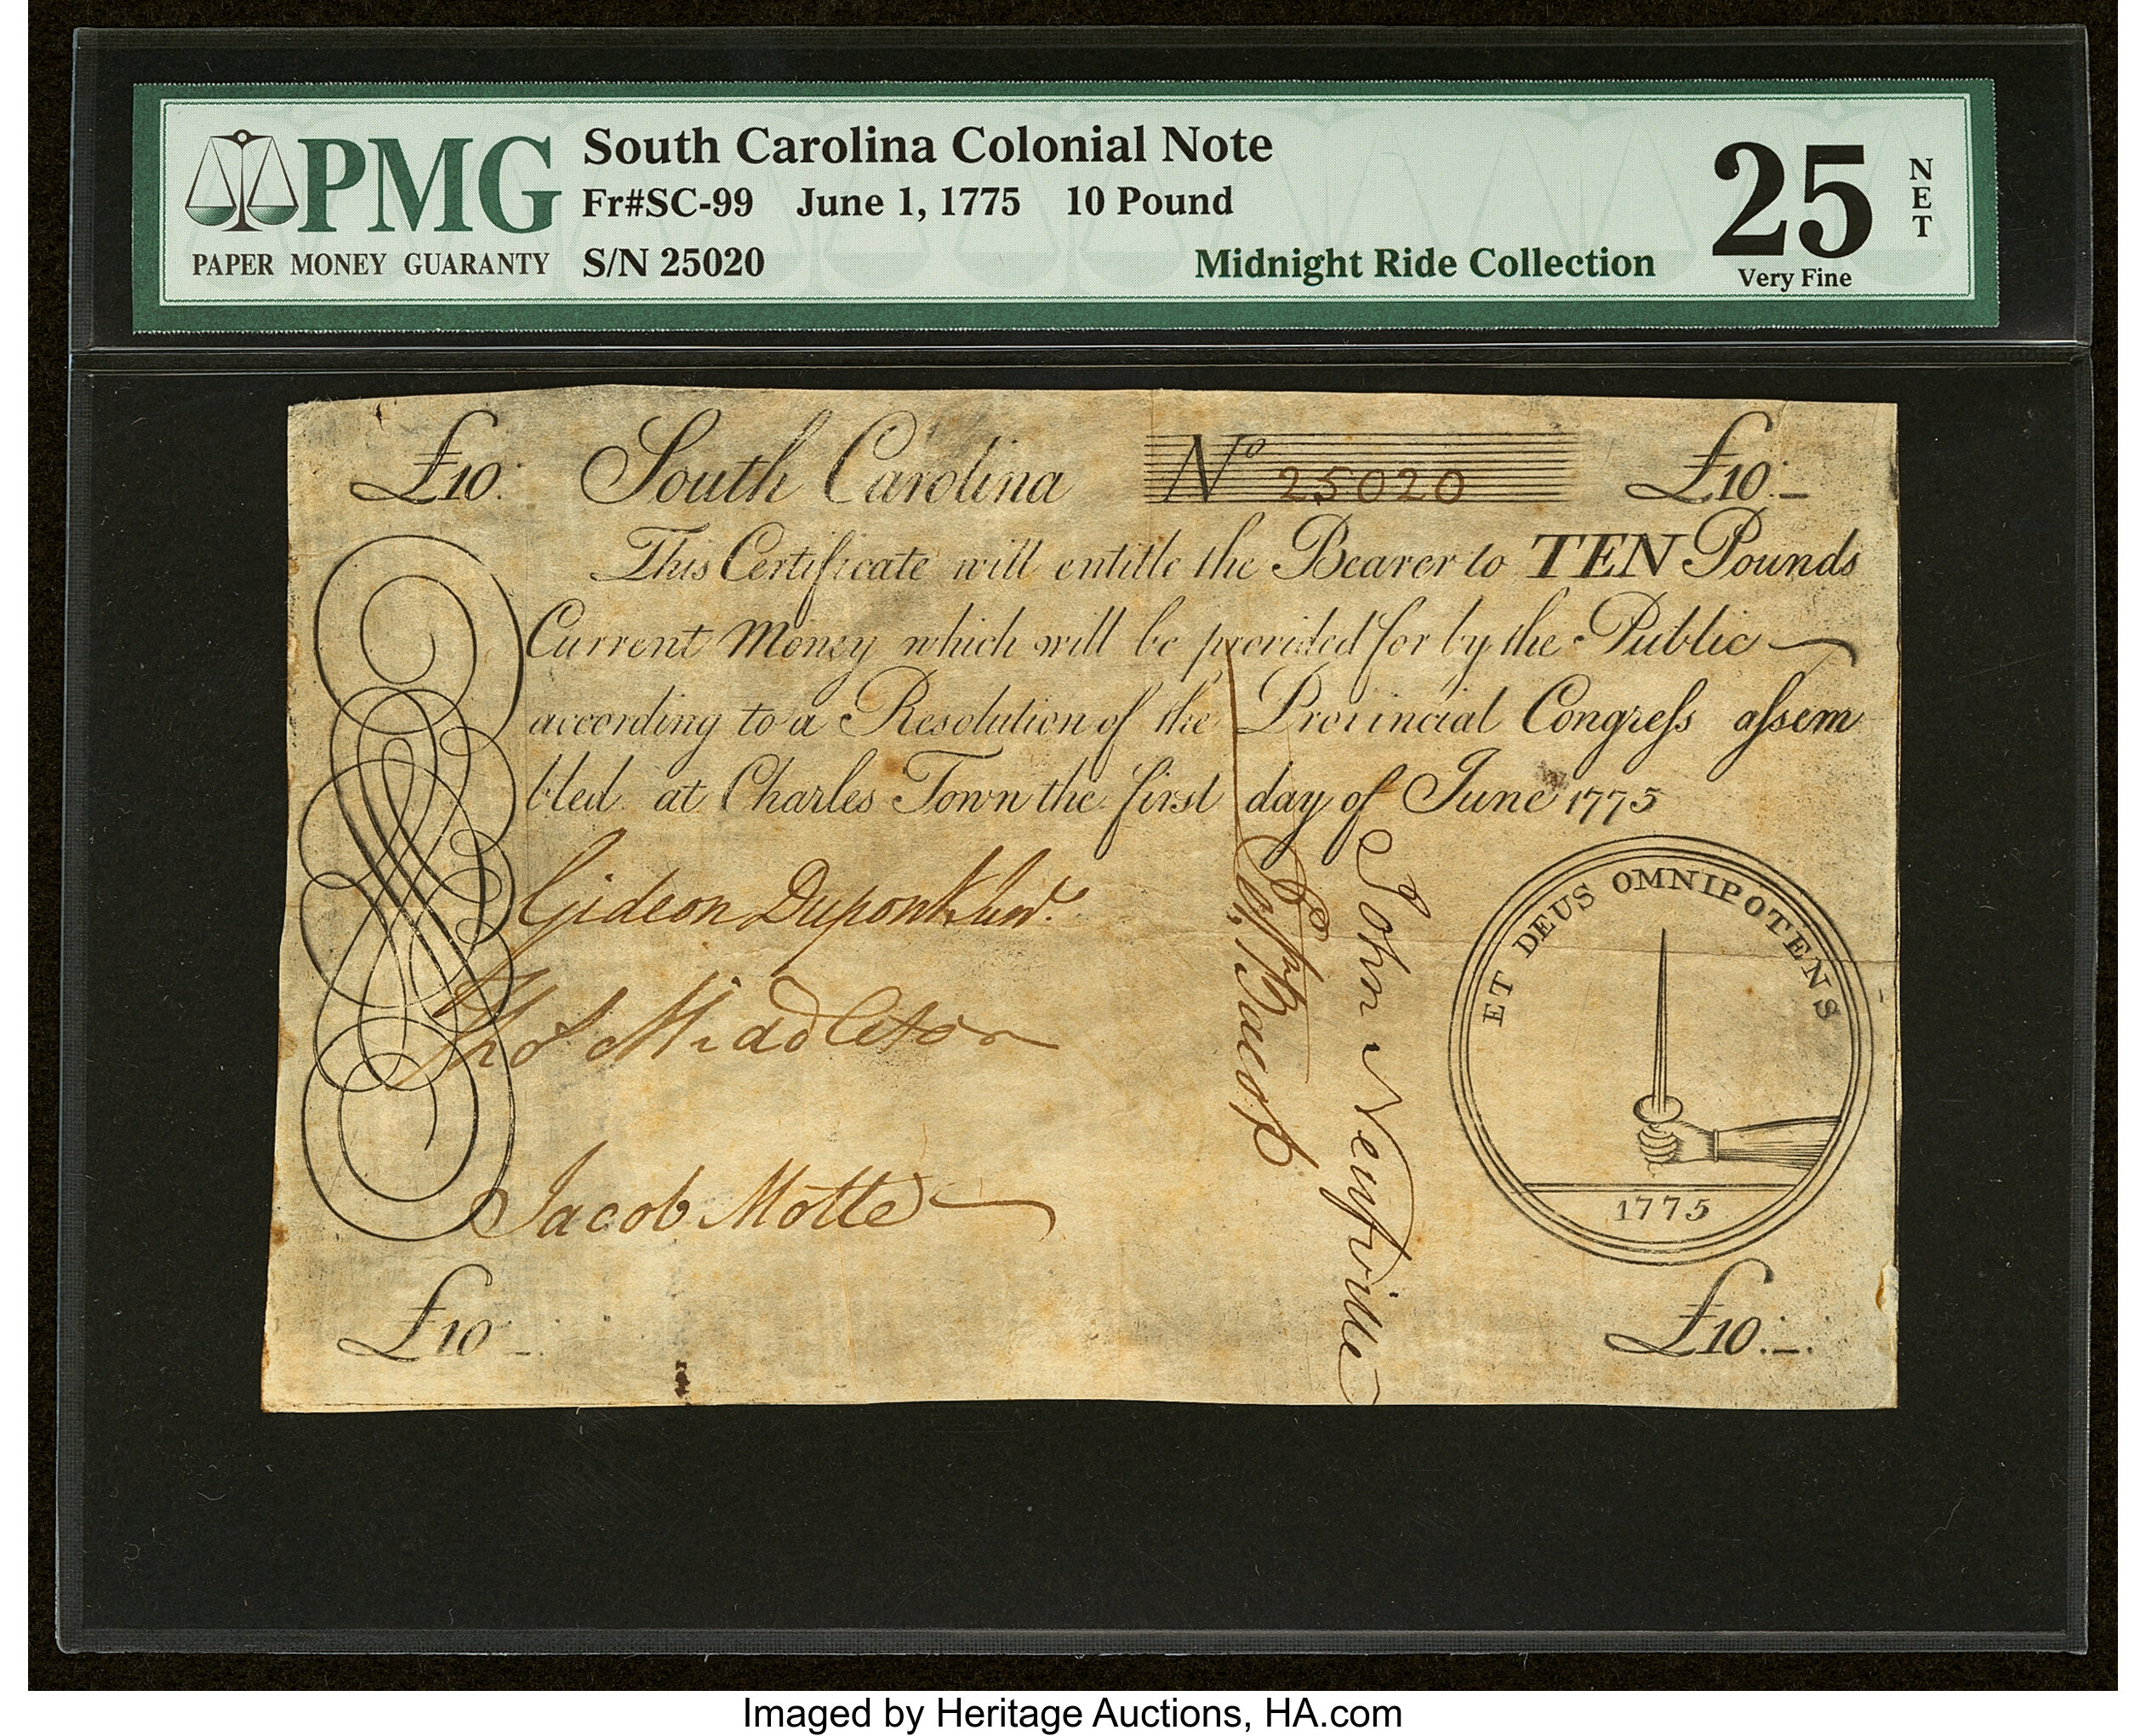 PMG
PAPER MONEY GUARANTY
South Carolina Colonial Note
Fr#SC-99 June 1, 1775 10 Pound
S/N 25020
Midnight Ride Collection
25
NET
Very Fine
£10: South Carolina No 25020 £10:–
This Certificate will entitle the Bearer to TEN Pounds
Current Money which will be provided for by the Public
according to a Resolution of the Provincial Congreſs aſsem
bled at Charles Town the first day of June 1775
Gideon Dupont
Thos Middleton
Jacob Motte
John Neufville
ET DEUS OMNIPOTENS
1775
£10
£10:–
Imaged by Heritage Auctions, HA.com